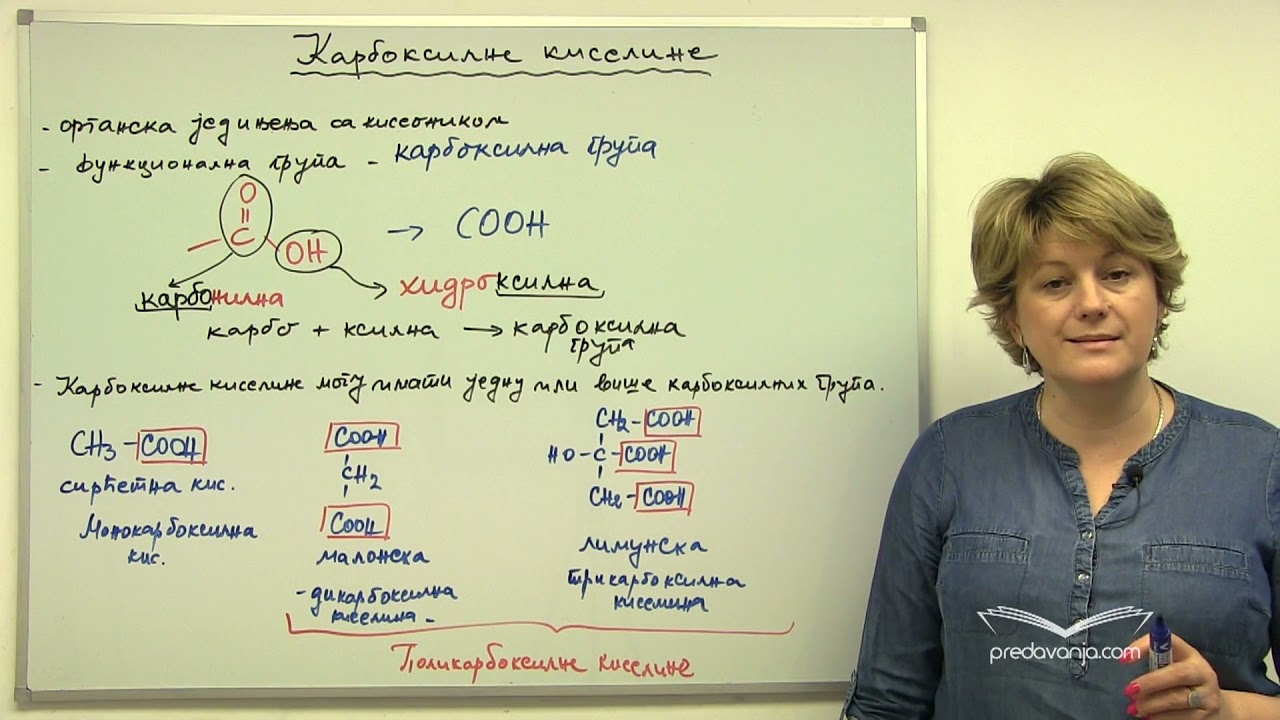 Карбоксилне киселине
- органска једињења са кисеоником
- функционална група - карбоксилна група
O
||
C
OH
→ COOH
карбонилна
хидроксилна
карбо + ксилна → карбоксилна
група
- Карбоксилне киселине могу имати једну или више карбоксилних група.
CH3 - COOH
сирћетна кис.
Монокарбоксилна
кис.
COOH
CH2
COOH
малонска
- дикарбоксилна
киселина -
CH2 - COOH
HO - C - COOH
CH2 - COOH
лимунска
трикарбоксилна
киселина
Поликарбоксилне киселине
predavanja.com